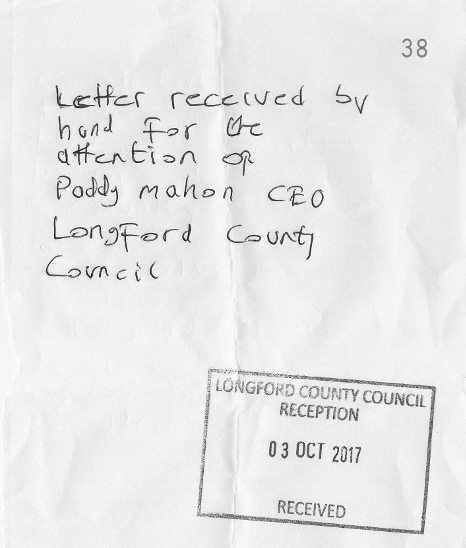 38
Letter received by
hand for the
attention of
Paddy mahon CEO
Longford County
Council
LONGFORD COUNTY COUNCIL
RECEPTION
03 OCT 2017
RECEIVED